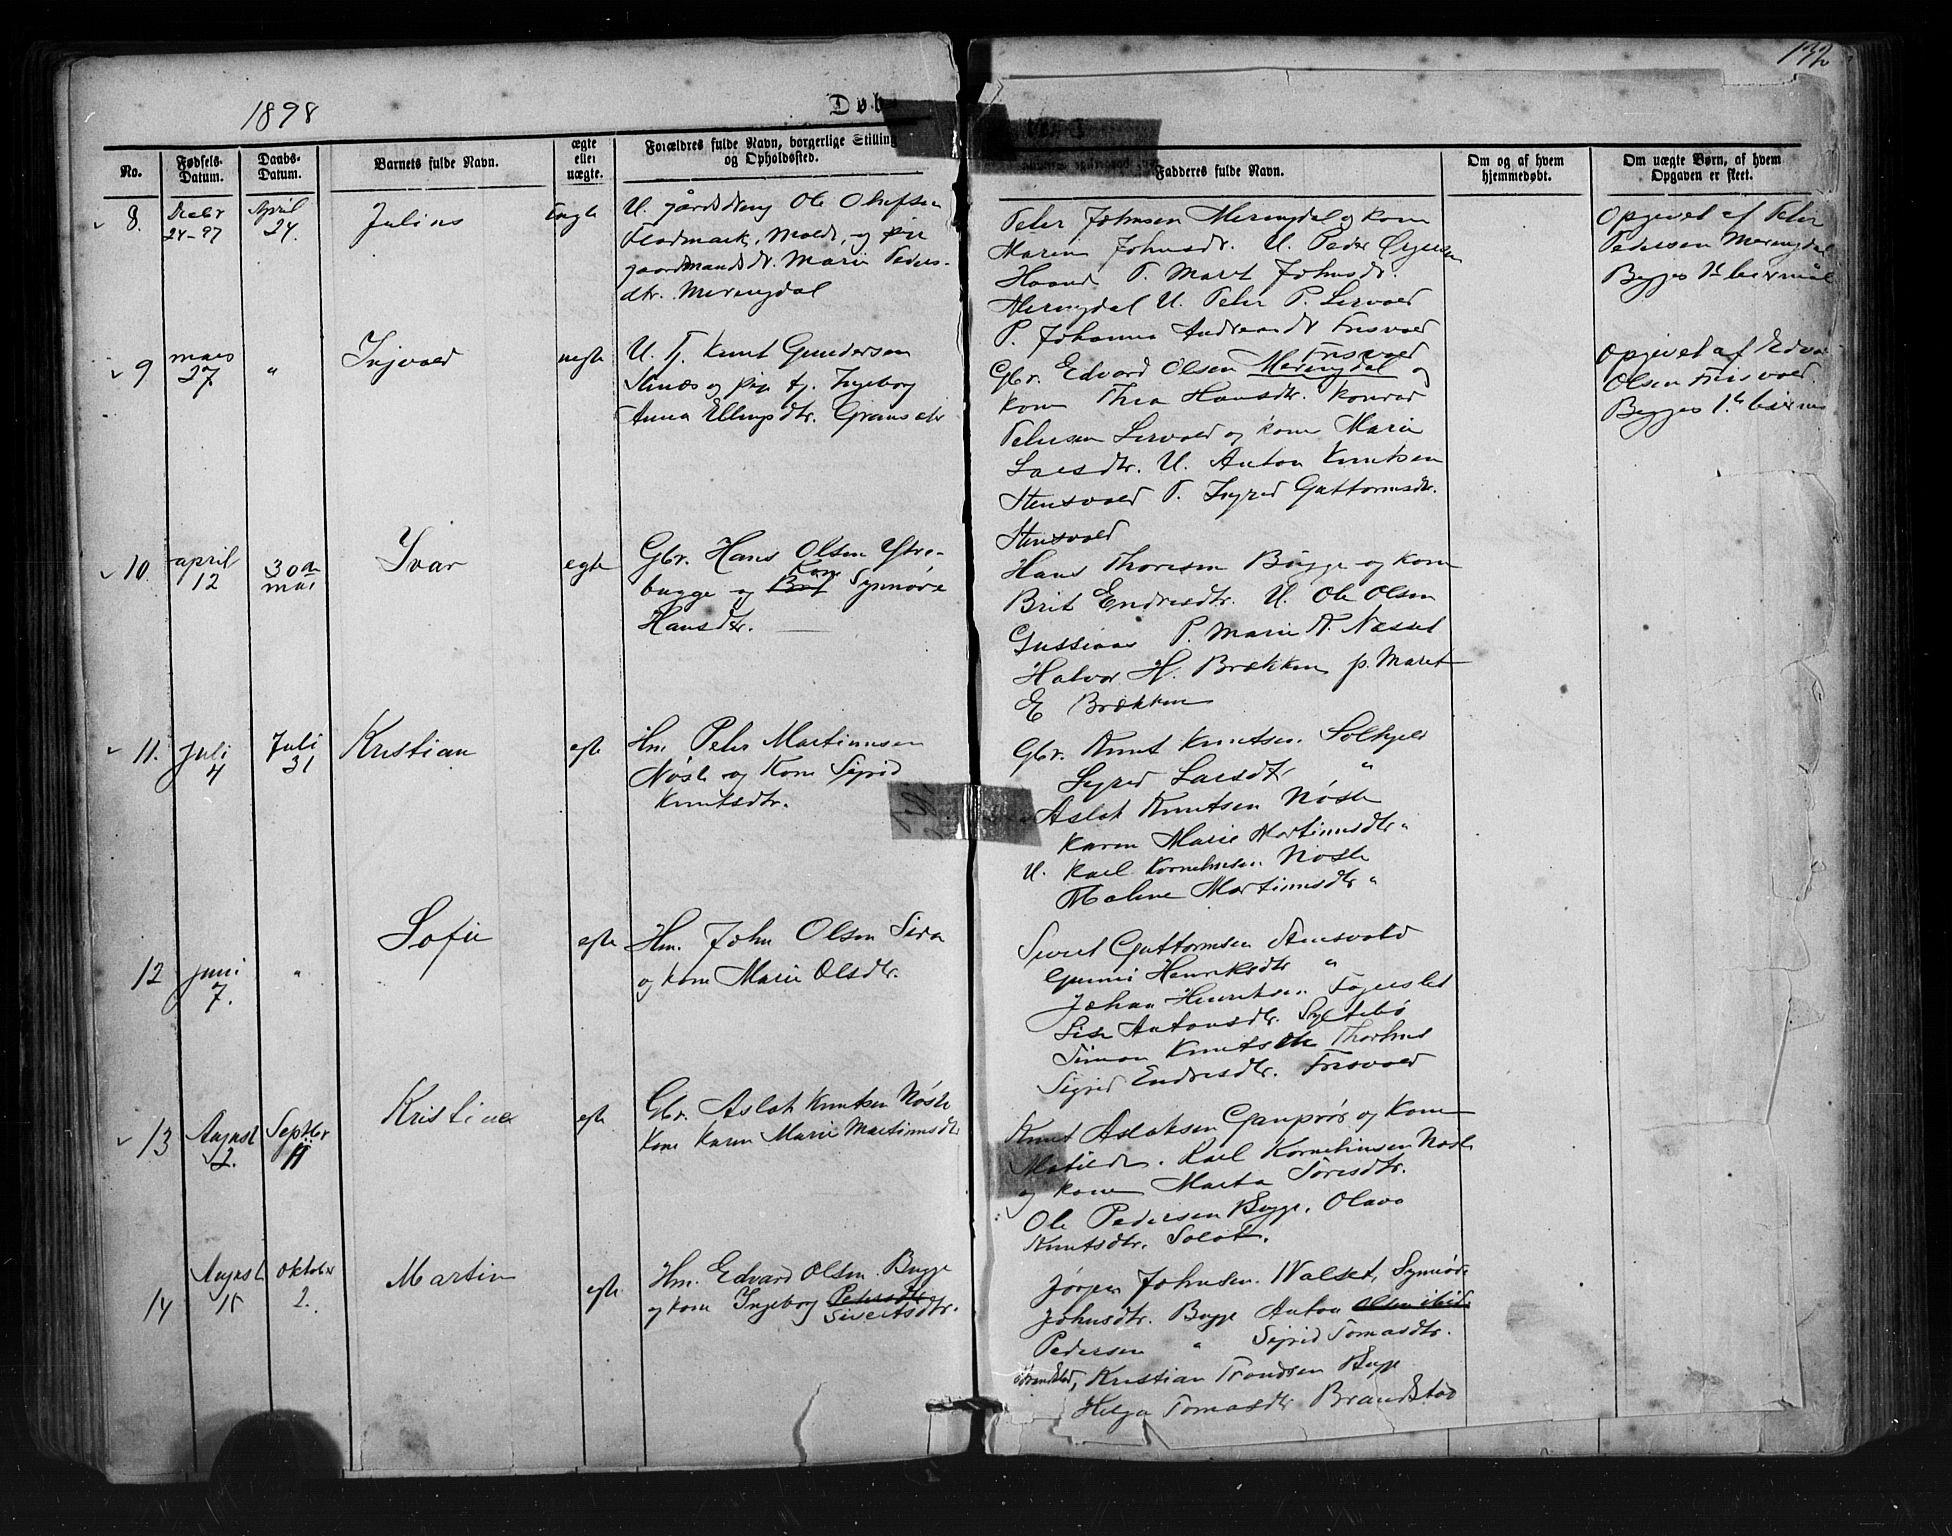 132
1898
Døb
No.
Fødsels-
Datum.
Daabs-
Datum.
Barnets fulde Navn.
ægte
eller
uægte.
Forældres fulde Navn, borgerlige Stilling
og Opholdssted.
Fadderes fulde Navn.
Om og af hvem
hjemmedøbt.
Om uægte Børn, af hvem
Opgaven er skeet.
8.
Decbr
24-97
April
24.
Julius
Uegte
U. gårddreng Ole Olufsen
Flodmark, Molde, og pige
gaardmandsdtr. Marie Peders-
dtr. Meringdal
Peter Johnsen Meringdal og kone
Marin Johnsdr. U. Peder
P. Maret Johnsdr.
Meringdal U. Peter P. Lervold
P. Johanna Frisvold
Opgivet af Peter
Pedersen Meringdal
Begges 1ste leiermål
9
mars
27
"
Ingvald
uegte
U. Tj. Knut Gundersen
og pige tj. Ingeborg
Anna Ellingsdtr.
Frisvold
Gbr. Edvard Olsen Meringdal og
kone Thea Hansdtr. Konrad
Petersen Lervold og kone Marie
Larsdtr. U. Anton Knutsen
Stensvold P. Ingrid Guttormsdtr.
Stensvold
Opgivet af Edvard
Olsen Frisvold.
Begges 1ste
10.
april
12
30te
mai
Ivar
egte
Gbr. Hans Olsen Ytre-
Kone
bugge og Brit Synnøve
Hansdtr.
Hans Thoresen Bugge og kone
Brit Endresdtr. U. Ole Olsen
Gussiaas P. Marie N. Nesset
Halvor H. Brækken p. Maret
E Brækken
11.
Juli
4
Juli
31
Kristian
egte
Hm. Peter Martinusen
Nøste og Kone Sigrid
Knutsdtr.
Gbr. Knut Knutsen Solhjell
Sigrid Larsdtr "
Aslak Knutsen Nøste
Karen Marie Martinusdtr "
U. Karl Korneliusen Nøste
Malene Martinusdtr "
12
juni
7.
"
Sofie
egte
Hm. John Olsen Sira
og kone Marie Olsdtr.
Sivert Guttormsen Stensvold
Gunni Henriksdtr "
Johan Henriksen
Lise Antonsdtr. Syltebø
Simon Knutsen Thorhus
Sigrid Endresdtr. Frisvold
13
August
12.
Septbr
11
Kristine
egte
Gbr. Aslak Knutsen Nøste
Kone Karen Marie Martinusdtr
Knut Aslaksen Ganprør og Kone
Matilde. Karl Korneliusen Nøste
og kone Marta Toresdtr.
Ole Pedersen Bugge. Olava
Knutsdtr. Solok.
14
August
15
Oktober
2.
Martin
egte
Hm. Edvard Olsen Bugge
og kone Ingeborg Pedersdtr
Sivertsdtr.
Jørgen Johnsen Walset, Synnøve
Johnsdtr. Bugge Anton Olsen ibid.
Pedersen " Sigrid Tomasdtr.
Brandstad, Kristian Trondsen Bugge
Helga Tomasdtr Brandstad